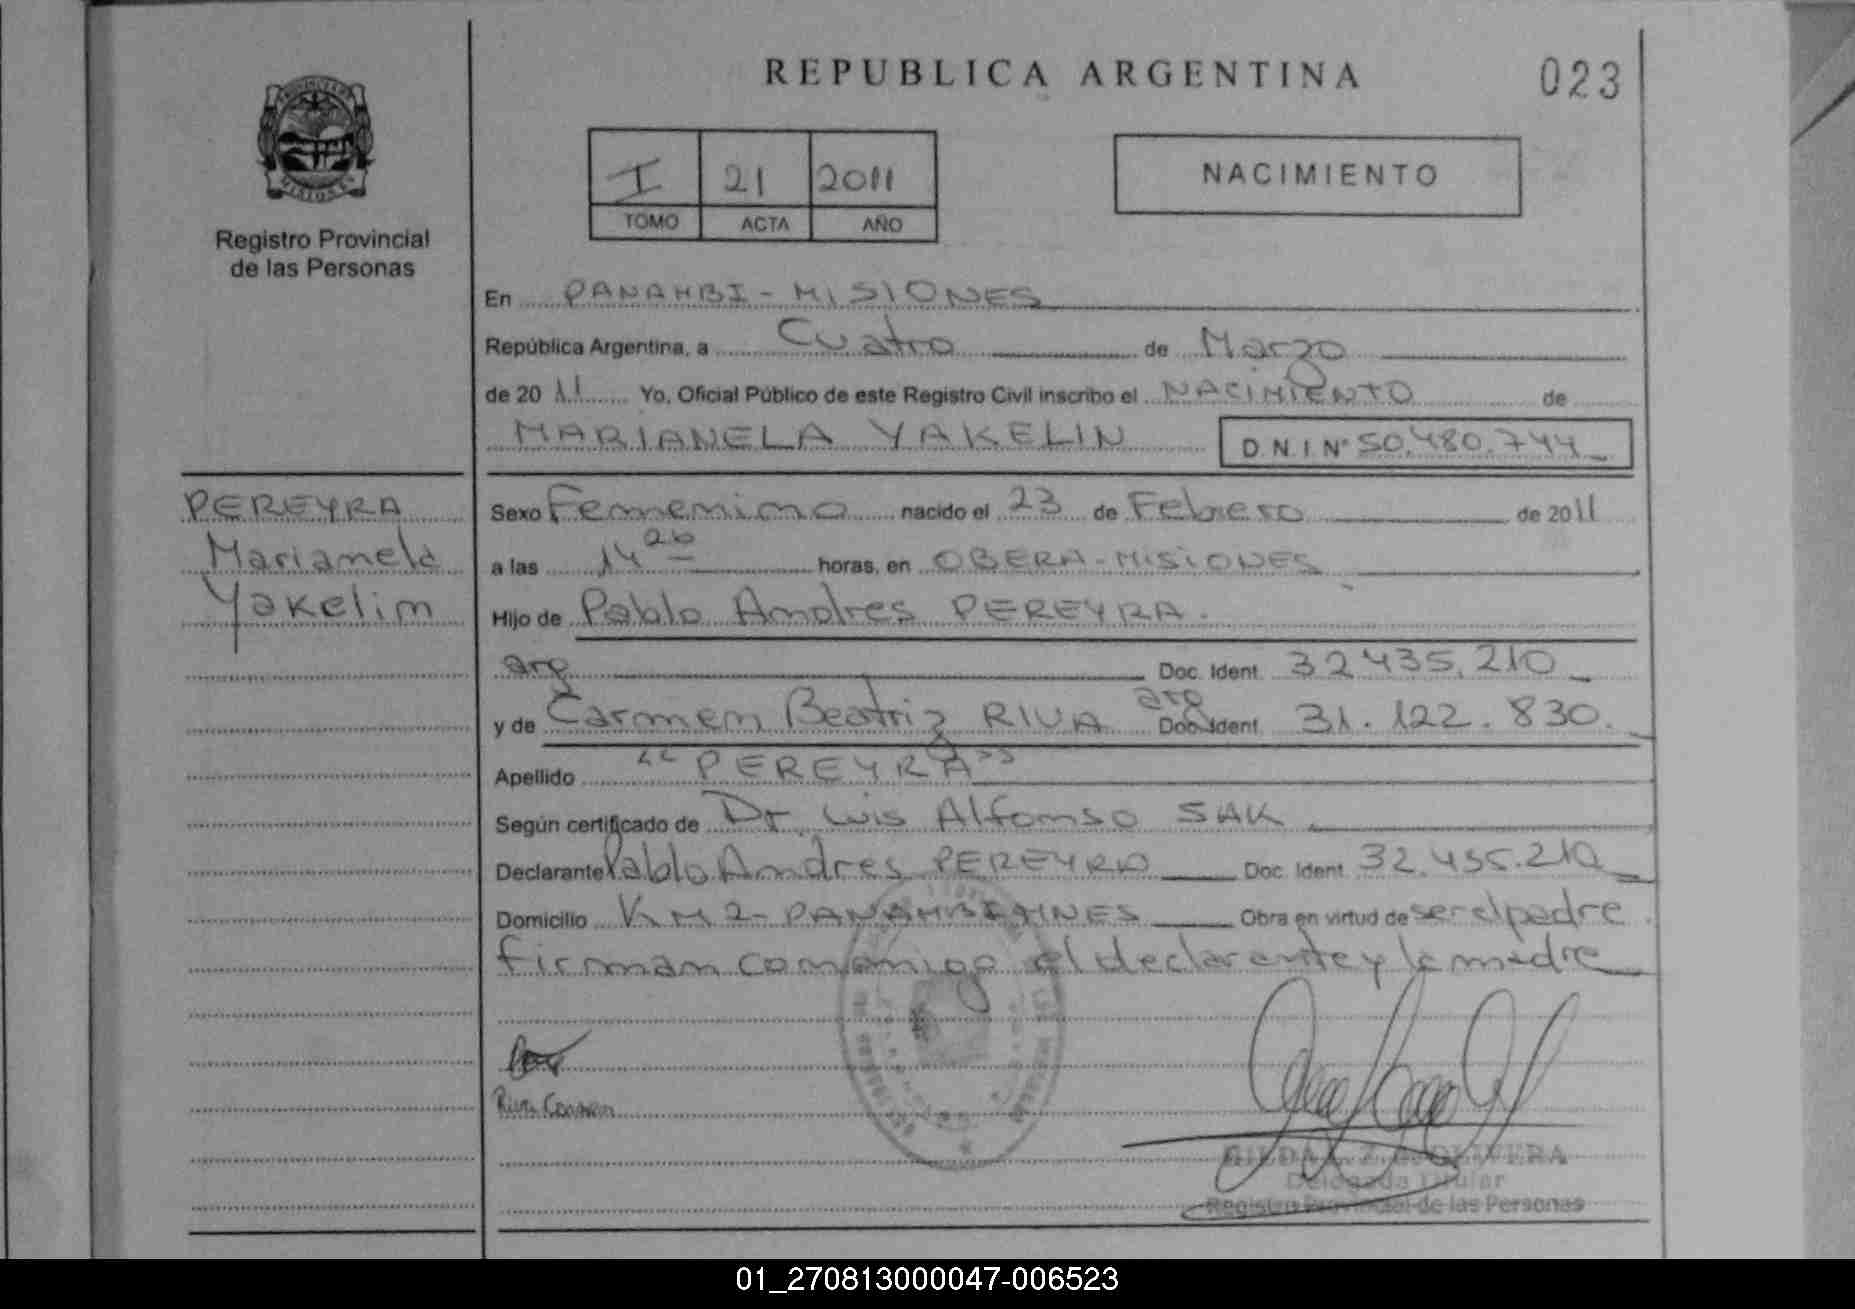 REPUBLICA ARGENTINA
023
I 21 2011
TOMO ACTA AÑO
NACIMIENTO
Registro Provincial
de las Personas
En PANAMBI - MISIONES
República Argentina, a Cuatro de Marzo
de 20 11 Yo, Oficial Público de este Registro Civil inscribo el NACIMIENTO de
MARIANELA YAKELIN D.N.I.Nº 50.480.744
PEREYRA
Marianela
Yakelin
Sexo Femenino nacido el 23 de Febrero de 2011
a las 14 20 horas, en OBERA - MISIONES
Hijo de Pablo Andres PEREYRA.
arg Doc. Ident. 32435.210
y de Carmen Beatriz RIVA arg Doc. Ident. 31.122.830.
Apellido "PEREYRA"
Según certificado de Dr. Luis Alfonso SAK
Declarante Pablo Andres PEREYRA Doc. Ident. 32.435.210
Domicilio KM 2 - PANAMBI MNES Obra en virtud de ser el padre
firman conmigo el declarante y la madre
Riva Carmen
OLIVERA
Delegada Titular
Registro Provincial de las Personas
01_270813000047-006523